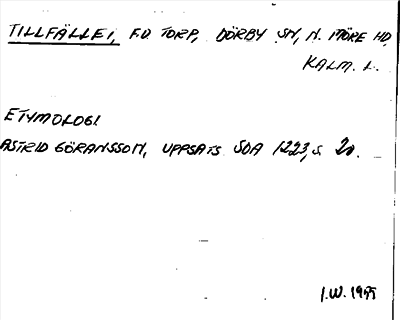 TILLFÄLLEI, F.D. TORP, DÖRBY SN, N. MÖRE HD,
KALM. L.
ETYMOLOGI
ASTRID GÖRANSSON, UPPSATS SOA 1223, S 20.
I.W. 1975